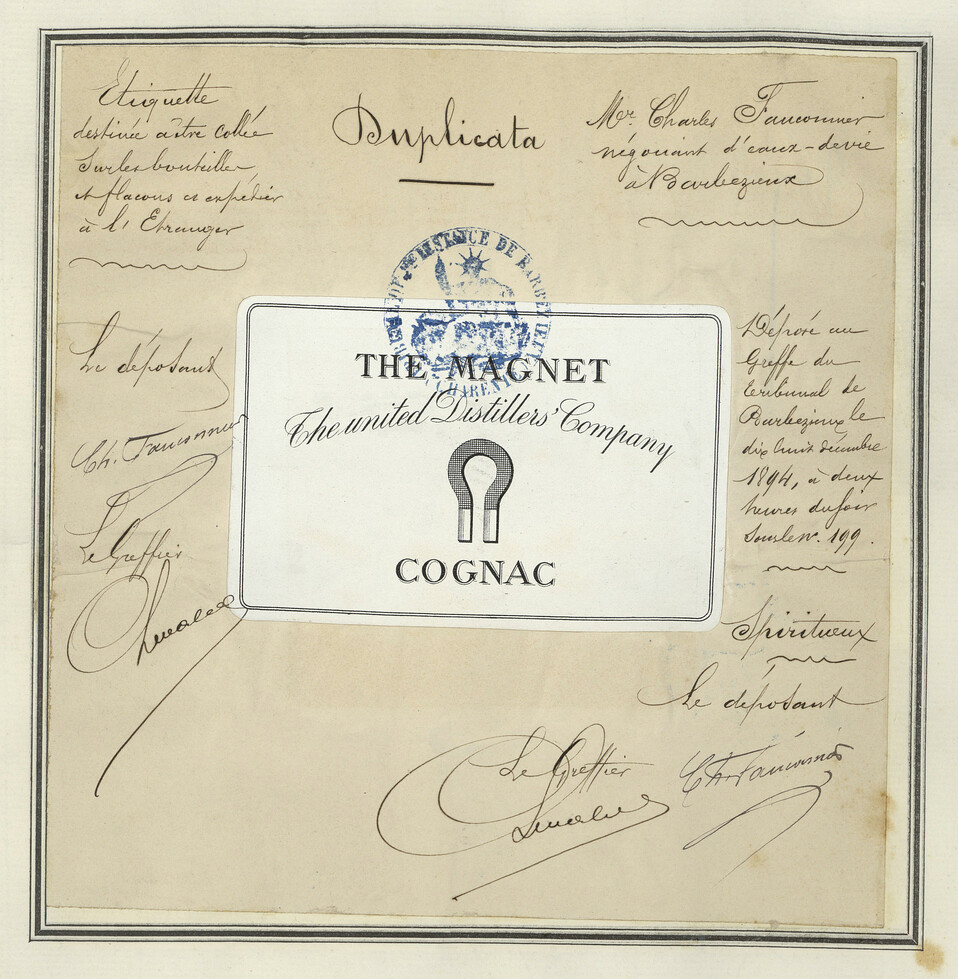 Etiquette
destinée à être collée
sur les bouteilles
et flacons et expédier
à l'Etranger
Duplicata
Mr. Charles Fauconnier
négociant d'eaux-de-vie
à Barbezieux
TRIBUNAL DE 1RE INSTANCE DE BARBEZIEUX
CHARENTE
THE MAGNET
The united Distillers' Company
COGNAC
Le déposant
Ch. Fauconnier
Le Greffier
Déposé au
Greffe du
tribunal de
Barbezieux le
dix huit décembre
1894, à deux
heures du soir
sous le n°. 199.
Spiritueux
Le déposant
Ch. Fauconnier
Le Greffier